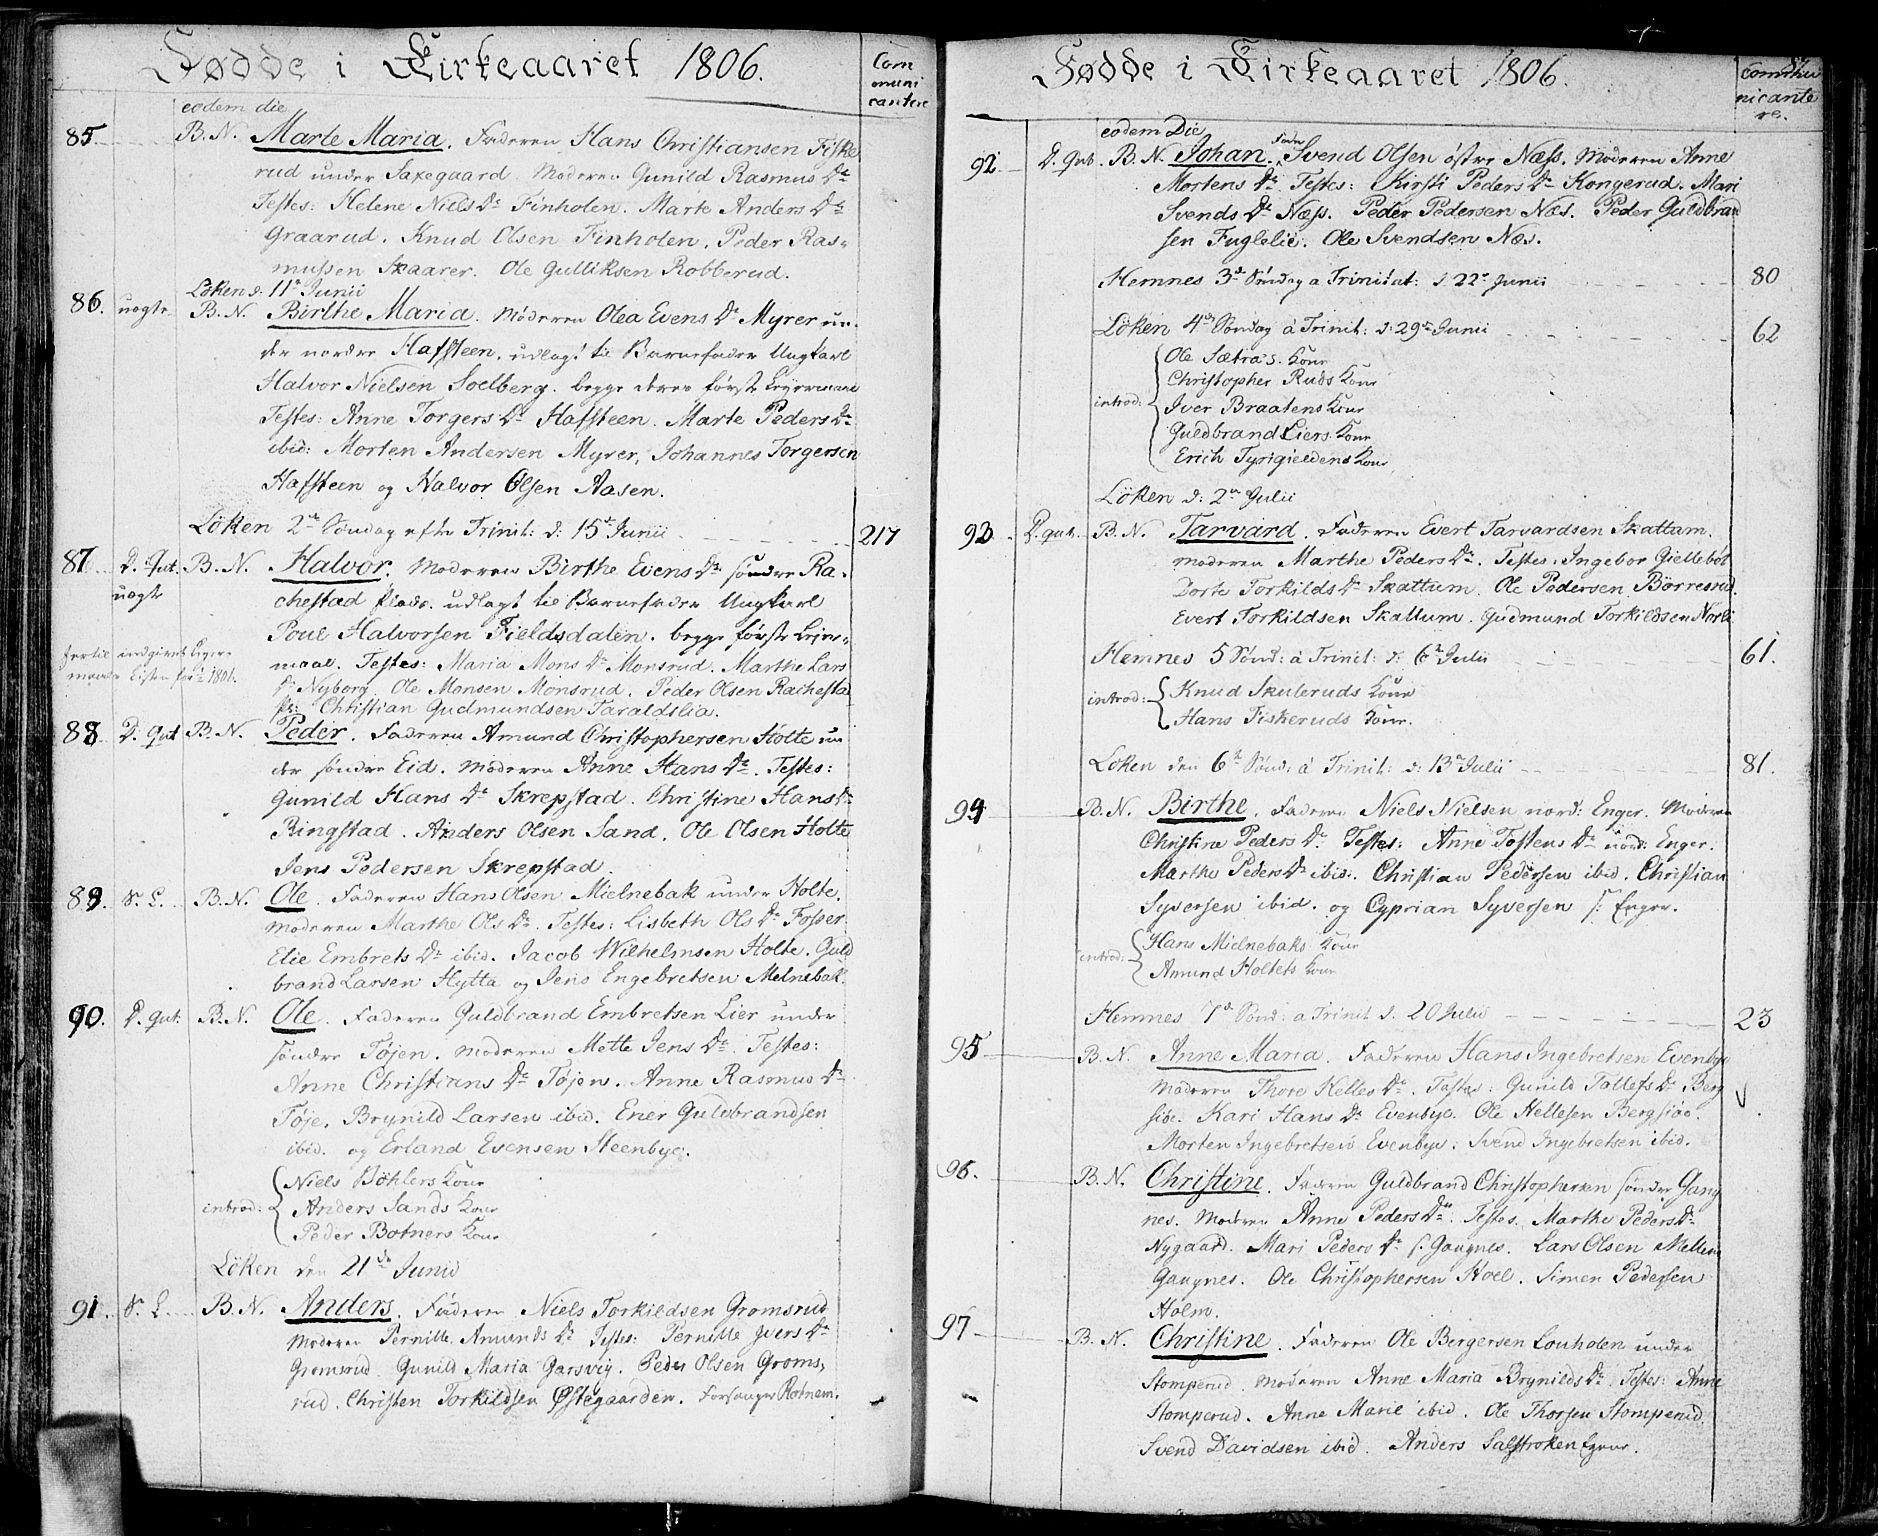 Fødde i Kirkeaaret 1806.
Com
muni
cantere
eodem die
85. B. N. Marte Maria. Faderen Hans Christiansen Fiske
rud under Saxegaard. Moderen Gunild Rasmus Dr
Testes: Helene Niels Dr Finholen. Marte Anders Dr
Graarud. Knud Olsen Finholen. Peder Ras-
mussen Skaarer. Ole Gulliksen Robberud.
Löken d: 11te Junii
86. uægte B. N. Birthe Maria. Moderen Olea Evens Dr Myrer un-
der nordre Hafsteen, udlagt til Barnefader Ungkarl
Halvor Nielsen Soelberg. begge deres første Leyermaal
Testes: Anne Torgers Dr Hafsteen. Marte Peders Dr
ibid: Morten Andersen Myrer, Johannes Torgersen
Hafsteen og Halvor Olsen Aasen.
Löken 2den Søndag efter Trinit: d: 15de Junii 217
87. D. Gut. B. N. Halvor. Moderen Birthe Evens Dr søndre Ra-
uægte chestad Plads. udlagt til Barnefader Ungkarl
Poul Halvorsen Fieldsdalen. begge første Leier-
maal. Testes: Maria Mons Dr Monsrud. Marthe Lars
indgivet Leger-
maals Listen for 1806.
Dr Nyborg. Ole Monsen Monsrud. Peder Olsen Rachestad
Pl: Christian Gudmundsen Taraldslia.
88. D. Gut B. N. Peder. Faderen Amund Christophersen Holte un
der søndre Eid. Moderen Anne Hans Dr. Testes:
Gunild Hans Dr Skrepstad. Christine Hans Dr
Ringstad. Anders Olsen Sand. Ole Olsen Holte
Jens Pedersen Skrepstad.
89. S. L. B. N. Ole. Faderen Hans Olsen Mielnebak under Holte.
Moderen Marthe Ols Dr. Testes: Lisbeth Ols Dr Fosser.
Elie Embrets Dr ibid. Jacob Wilhelmsen Holte. Guld
brand Larsen Hytta og Jens Engebretsen Melnebak.
90. D. Gut: B. N. Ole. Faderen Guldbrand Embretsen Lier under
søndre Töjen. Moderen Mette Jens Dr. Testes:
Anne Christians Dr Töjen. Anne Rasmus Dr
Töje. Brynild Larsen ibid. Ener Guldbrandsen
ibid. og Erland Evensen Steenbye.
introd: Niels Böhlers Kone
Anders Sands Kone
Peder Botners Kone
Löken den 21de Junii
91. S. L. B. N. Anders. Faderen Niels Torkildsen Gromsrud
Moderen Pernille Amunds Dr Testes: Pernille Ivers Dr
Gromsrud. Gunild Maria Garsvig. Peder Olsen Groms-
rud. Christen Torkildsen Østegaarden. Forsanger Rotnem.
Fødde i Kirkeaaret 1806.
87
Commu
nicante
re.
eodem Die
92. D. Gut. B. N. Johan. Fader Svend Olsen østre Næss. Moderen Anne
Mortens Dr. Testes: Kirsti Peders Dr Kongerud. Mari
Svends Dr Næss. Peder Pedersen Næs. Peder Guldbrand
sen Fuglelie. Ole Svendsen Næs.
Hemnes 3de Søndag a Trinitat: d 22de Junii 80
Löken 4de Søndag à Trinit: d: 29de Junii 62
introd: Ole Sætra's Kone
Christopher Ruds Kone
Iver Braatens Kone
Guldbrand Liers Kone
Erich Tyrigieldens Kone
Löken d: 2den Julii
93. D. Gut. B. N. Tarvard. Faderen Evert Tarvardsen Skattum.
Moderen Marthe Peders Dr. Testes: Ingebor Giellebøl
Dorte Torkilds Dr Skattum. Ole Pedersen Börresrud.
Evert Torkildsen Skattum. Gudmund Torkildsen Norli
Hemnes 5 Sönd: à Trinit: d: 6te Julii 61.
introd: Knud Skuleruds Kone
Hans Fiskeruds Kone.
Löken den 6te Sönd: à Trinit: d: 13de Julii 81.
94 B. N. Birthe. Faderen Niels Nielsen nord: Enger. Moderen
Christine Peders Dr. Testes: Anne Tostens Dr nord: Enger.
Marthe Peders Dr ibid. Christian Pedersen ibid. Christian
Syversen ibid. og Cyprian Syversen s: Enger.
introd: Hans Mielnebaks Kone
Amund Holtets Kone
Hemnes 7de Sönd: a Trinit d. 20 Julii 23
95 B. N. Anne Maria. Faderen Hans Ingebretsen Evenbye
Moderen Thore Helles Dr. Testes: Gunild Tollefs Dr Berg
siøe. Kari Hans Dr Evenbye. Ole Hellesen Bergsiøe.
Morten Ingebretsen Evenbye. Svend Ingebretsen ibid.
96. B. N. Christine. Faderen Guldbrand Christophersen søndre Gang
nes. Moderen Anne Peders Dr. Testes. Marthe Peders Dr
Nygaard. Mari Peders Dr s. Gangnes. Lars Olsen Mellem
Gangnes. Ole Christophersen Hoel. Simen Pedersen
Holm.
97 B. N. Christine. Faderen Ole Bergersen Louholen under
Stomperud. Moderen Anne Maria Brynilds Dr. Testes: Anne
Stomperud. Anne Marie ibid. Ole Thorsen Stomperud.
Svend Davidsen ibid. Anders Salstroken Egnes.